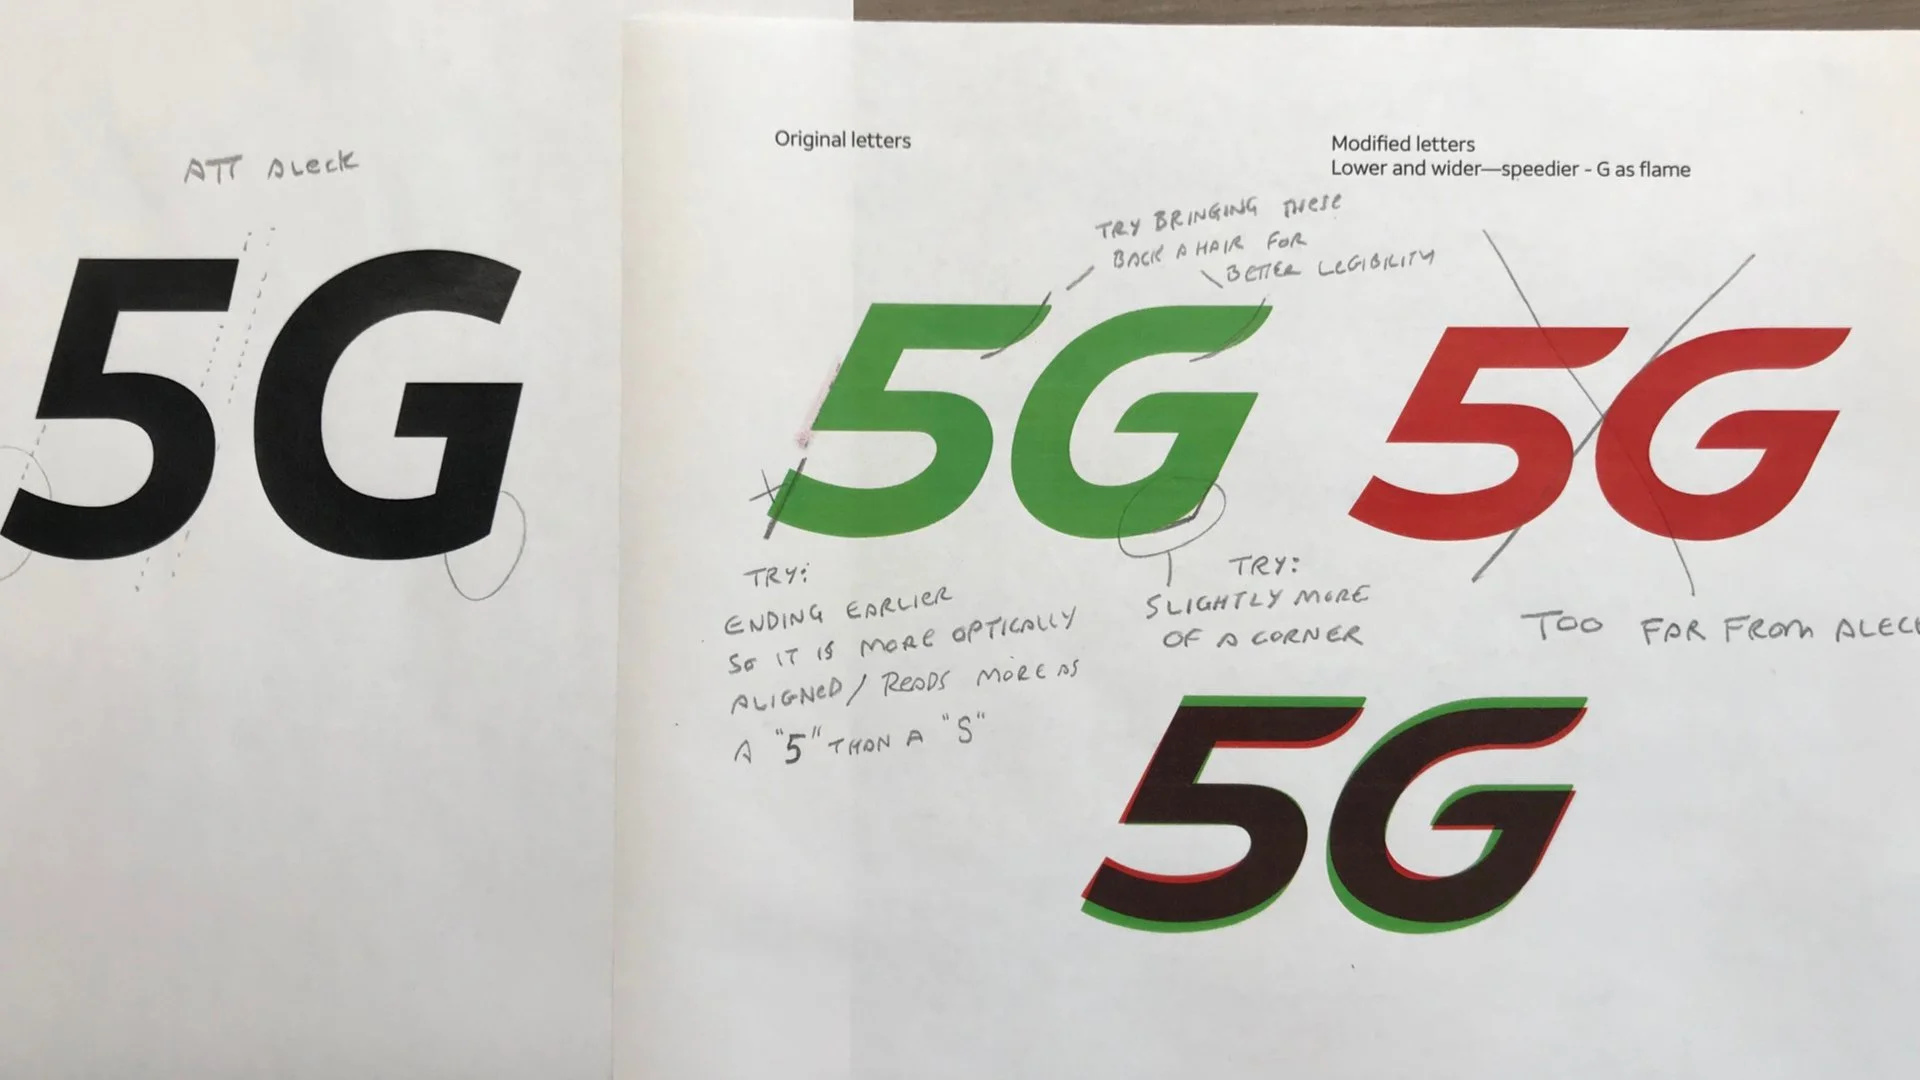 ATT ALeck
5G
Original letters
TRY BRINGING THese
BACK A HAIR FOR
BETTER LeGIBILITY
5G
TRY:
ENDING EARLIER
So IT IS MORE OPTICALLY
ALIGNED/ READS MORE AS
A "5" THAN A "S"
TRY:
SLIGHTLY MORE
OF A CORNER
Modified letters
Lower and wider—speedier - G as flame
5G
TOO FAR FROM ALECK
5G